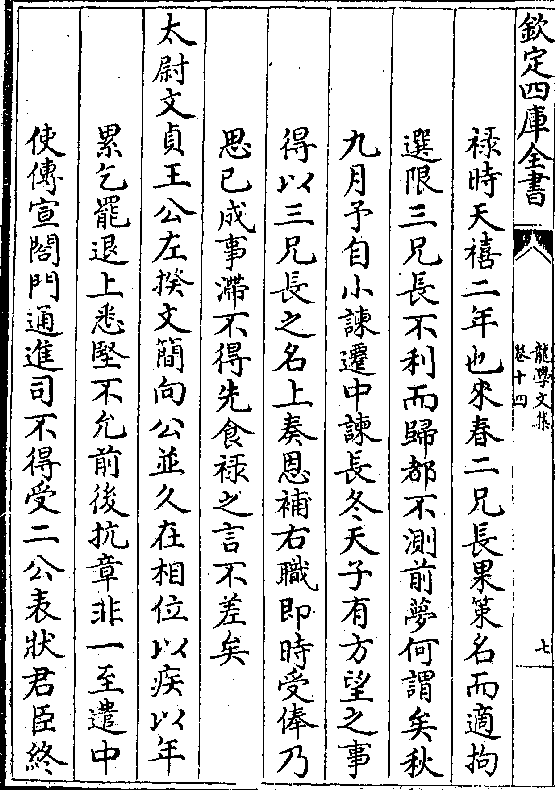 欽定四庫全書
龍學文集
卷十四
七
禄時天禧二年也來春二兄長果策名而適拘
選限三兄長不利而歸都不測前夢何謂矣秋
九月予自小諫遷中諫長冬天子有方望之事
得以三兄長之名上奏恩補右職即時受俸乃
思已成事滯不得先食禄之言不差矣
太尉文貞王公左揆文簡向公並久在相位以疾以年
累乞罷退上悉堅不允前後抗章非一至遣中
使傳宣閤門通進司不得受二公表狀君臣終